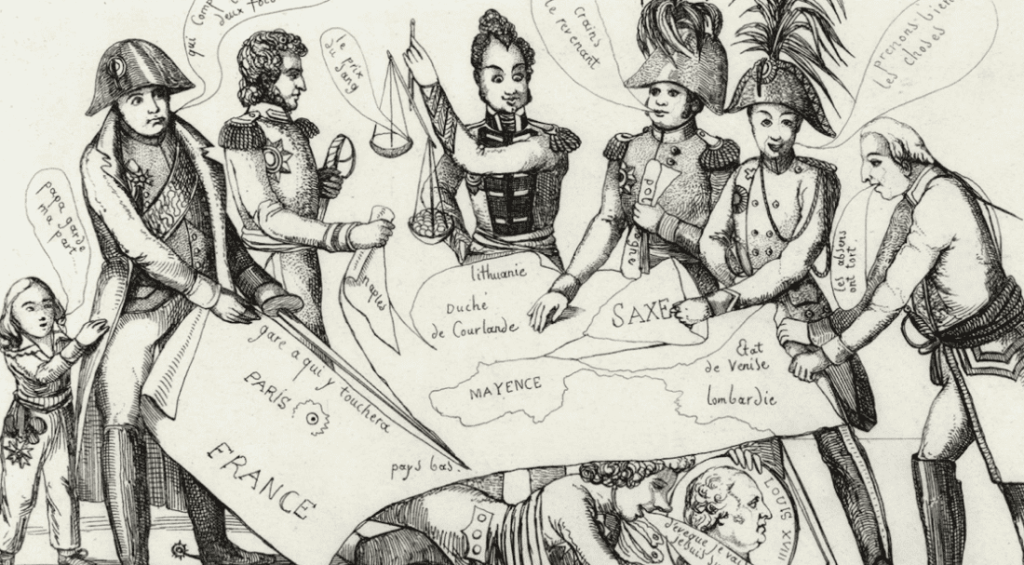 qui comp
deux fois
le prix
du sang
crains
le revenant
prenons bien
les choses
papa garde
ma part
les absens
ont tort
naples
lithuanie
Duché
de Courlande
SAXE
gare a qui y touchera
PARIS
FRANCE
MAYENCE
Etat
de Venise
lombardie
pays bas.
LOUIS XVIII